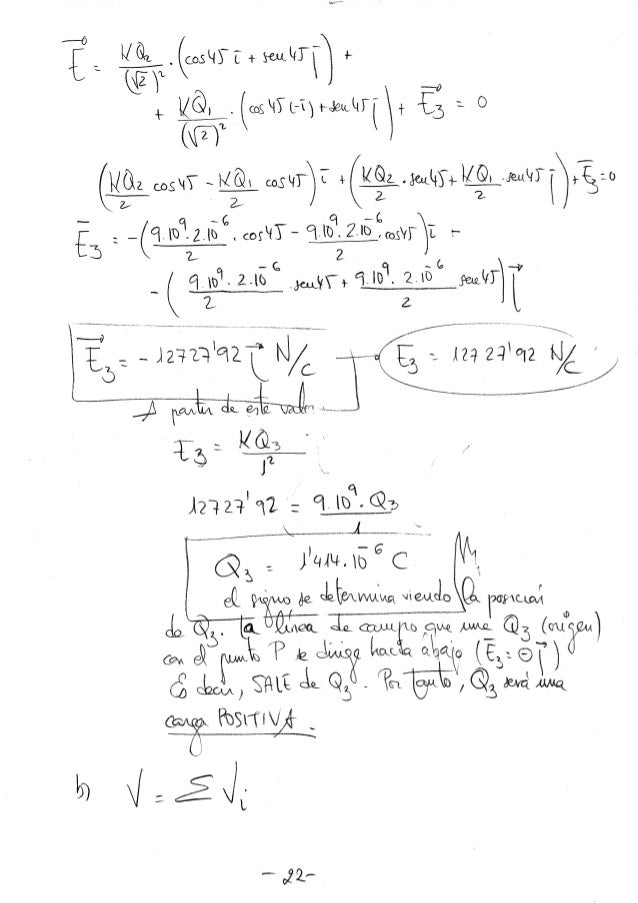 E⃗ = KQ₂/(√2)² · (cos45 i + sen45 j) +
+ KQ₁/(√2)² · (cos45 (-i) + sen45 j) + E⃗₃ = 0
(KQ₂/2 cos45 - KQ₁/2 cos45) i + (KQ₂/2 · sen45 + KQ₁/2 · sen45 j) + E⃗₃ = 0
E⃗₃ = -(9.10⁹.2.10⁻⁶/2 . cos45 - 9.10⁹.2.10⁻⁶/2 . cos45) i -
- (9.10⁹.2.10⁻⁶/2 sen45 + 9.10⁹.2.10⁻⁶/2 sen45) j
E⃗₃ = -12727'92 j N/C E₃ = 12727'92 N/C
A partir de este valor
E₃ = KQ₃/1²
12727'92 = 9.10⁹.Q₃/1
Q₃ = 1'414.10⁻⁶ C
el signo se determina viendo la posición
de Q₃. la línea de campo que une Q₃ (origen)
con el punto P se dirige hacia abajo (E⃗₃: ⊖ j)
Es decir, SALE de Q₃. Por tanto, Q₃ será una
carga POSITIVA.
b) V = Σ Vᵢ
- 22 -